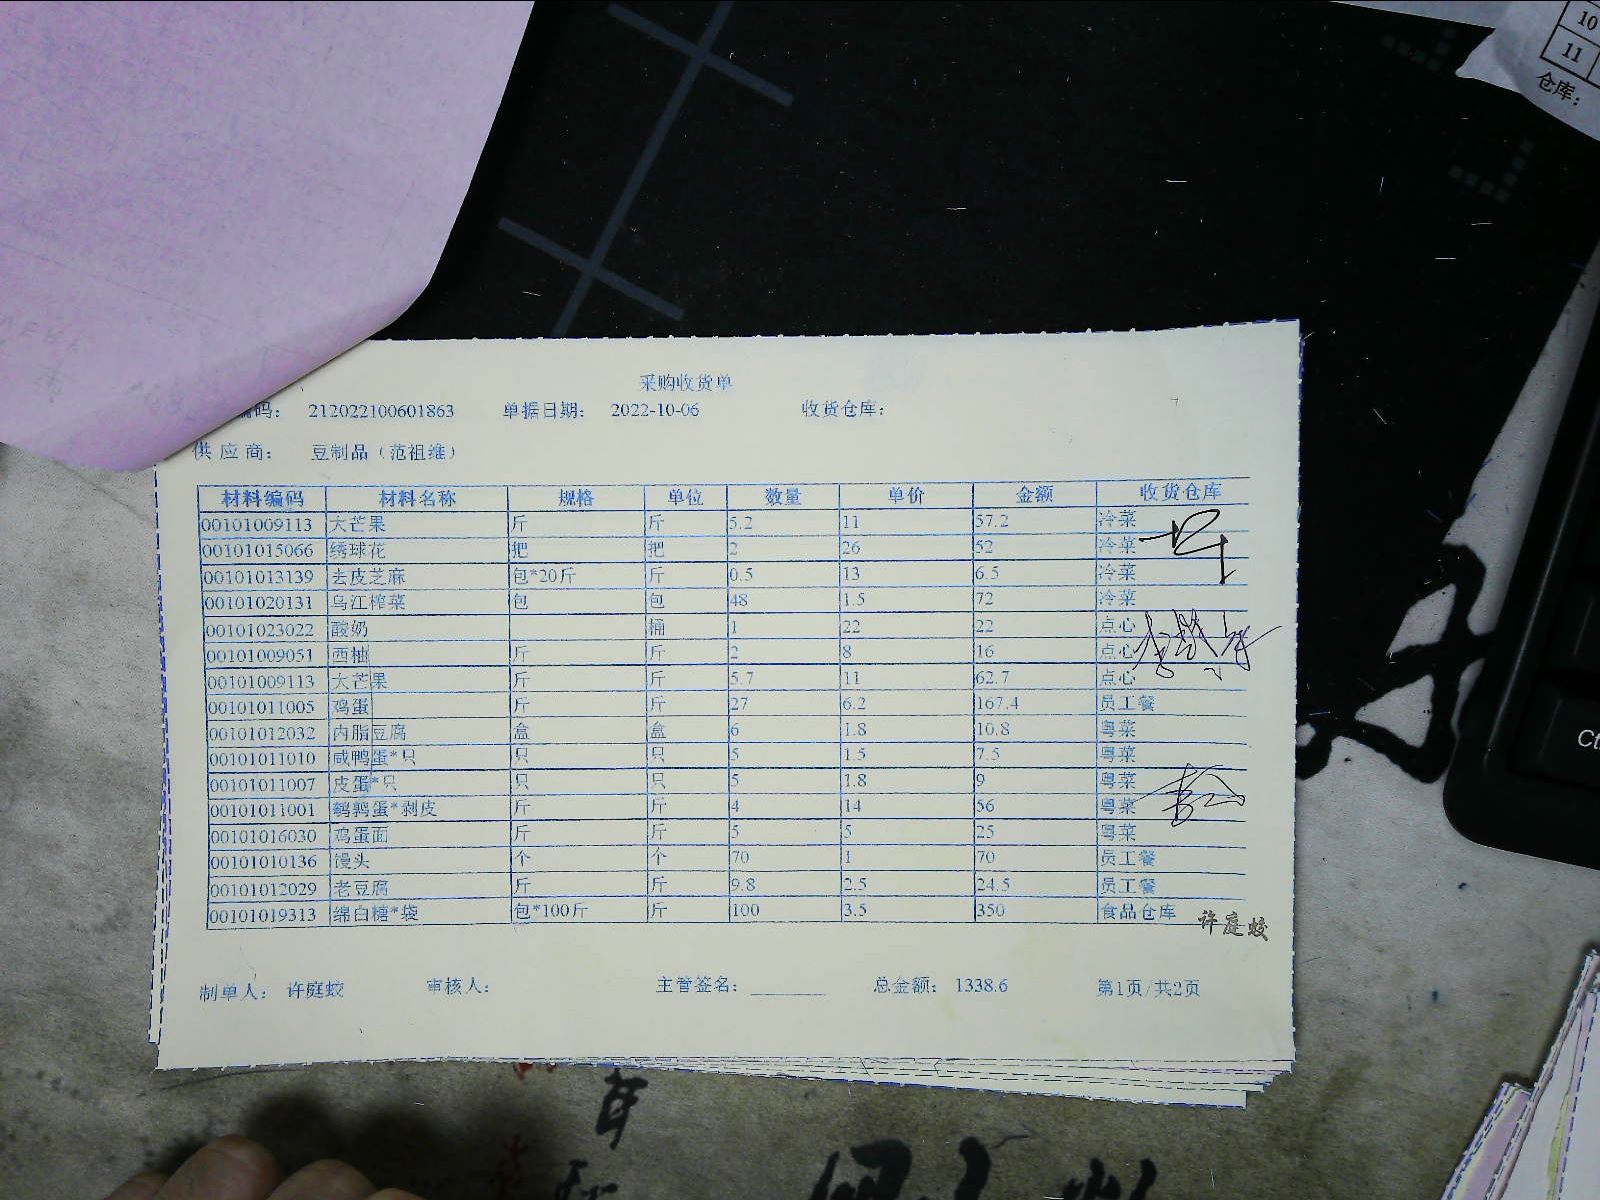 10
11
仓库：
采购收货单
编码： 212022100601863 单据日期： 2022-10-06 收货仓库：
供应商： 豆制品（范祖维）
材料编码 材料名称 规格 单位 数量 单价 金额 收货仓库
00101009113 大芒果 斤 斤 5.2 11 57.2 冷菜
00101015066 绣球花 把 把 2 26 52 冷菜
00101013139 去皮芝麻 包*20斤 斤 0.5 13 6.5 冷菜
00101020131 乌江榨菜 包 包 48 1.5 72 冷菜
00101023022 酸奶 桶 1 22 22 点心
00101009051 西柚 斤 斤 2 8 16 点心
00101009113 大芒果 斤 斤 5.7 11 62.7 点心
00101011005 鸡蛋 斤 斤 27 6.2 167.4 员工餐
00101012032 内脂豆腐 盒 盒 6 1.8 10.8 粤菜
00101011010 咸鸭蛋*只 只 只 5 1.5 7.5 粤菜
00101011007 皮蛋*只 只 只 5 1.8 9 粤菜
00101011001 鹌鹑蛋*剥皮 斤 斤 4 14 56 粤菜
00101016030 鸡蛋面 斤 斤 5 5 25 粤菜
00101010136 馒头 个 个 70 1 70 员工餐
00101012029 老豆腐 斤 斤 9.8 2.5 24.5 员工餐
00101019313 绵白糖*袋 包*100斤 斤 100 3.5 350 食品仓库
许庭蛟
制单人： 许庭蛟 审核人： 主管签名： 总金额： 1338.6 第1页/共2页
Ct